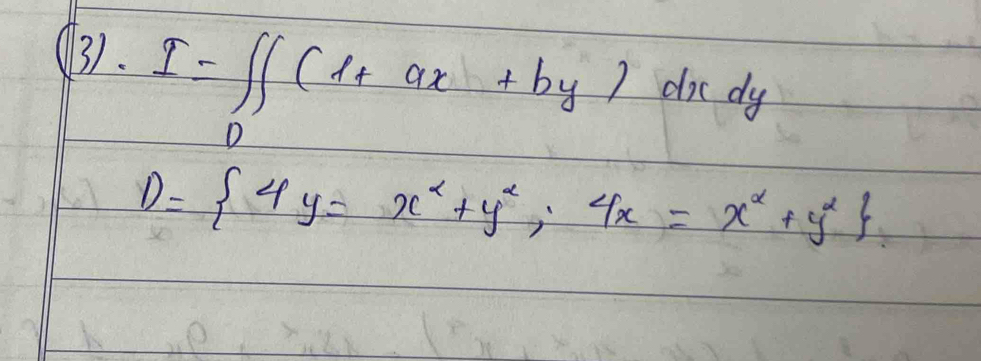 (3). I = ∬ (1 + ax + by) dx dy
D
D = { 4y = x² + y² ; 4x = x² + y² }.